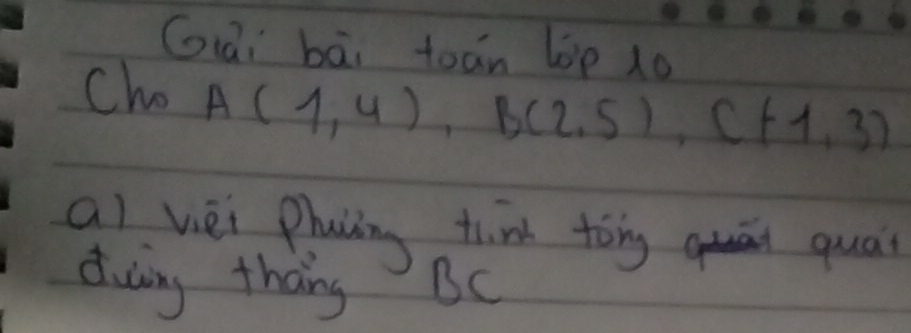 Giải bài toán lớp 10
Cho A(1,4), B(2,5), C(-1,3)
a) Viết Phương trình tổng quát
đường thẳng BC